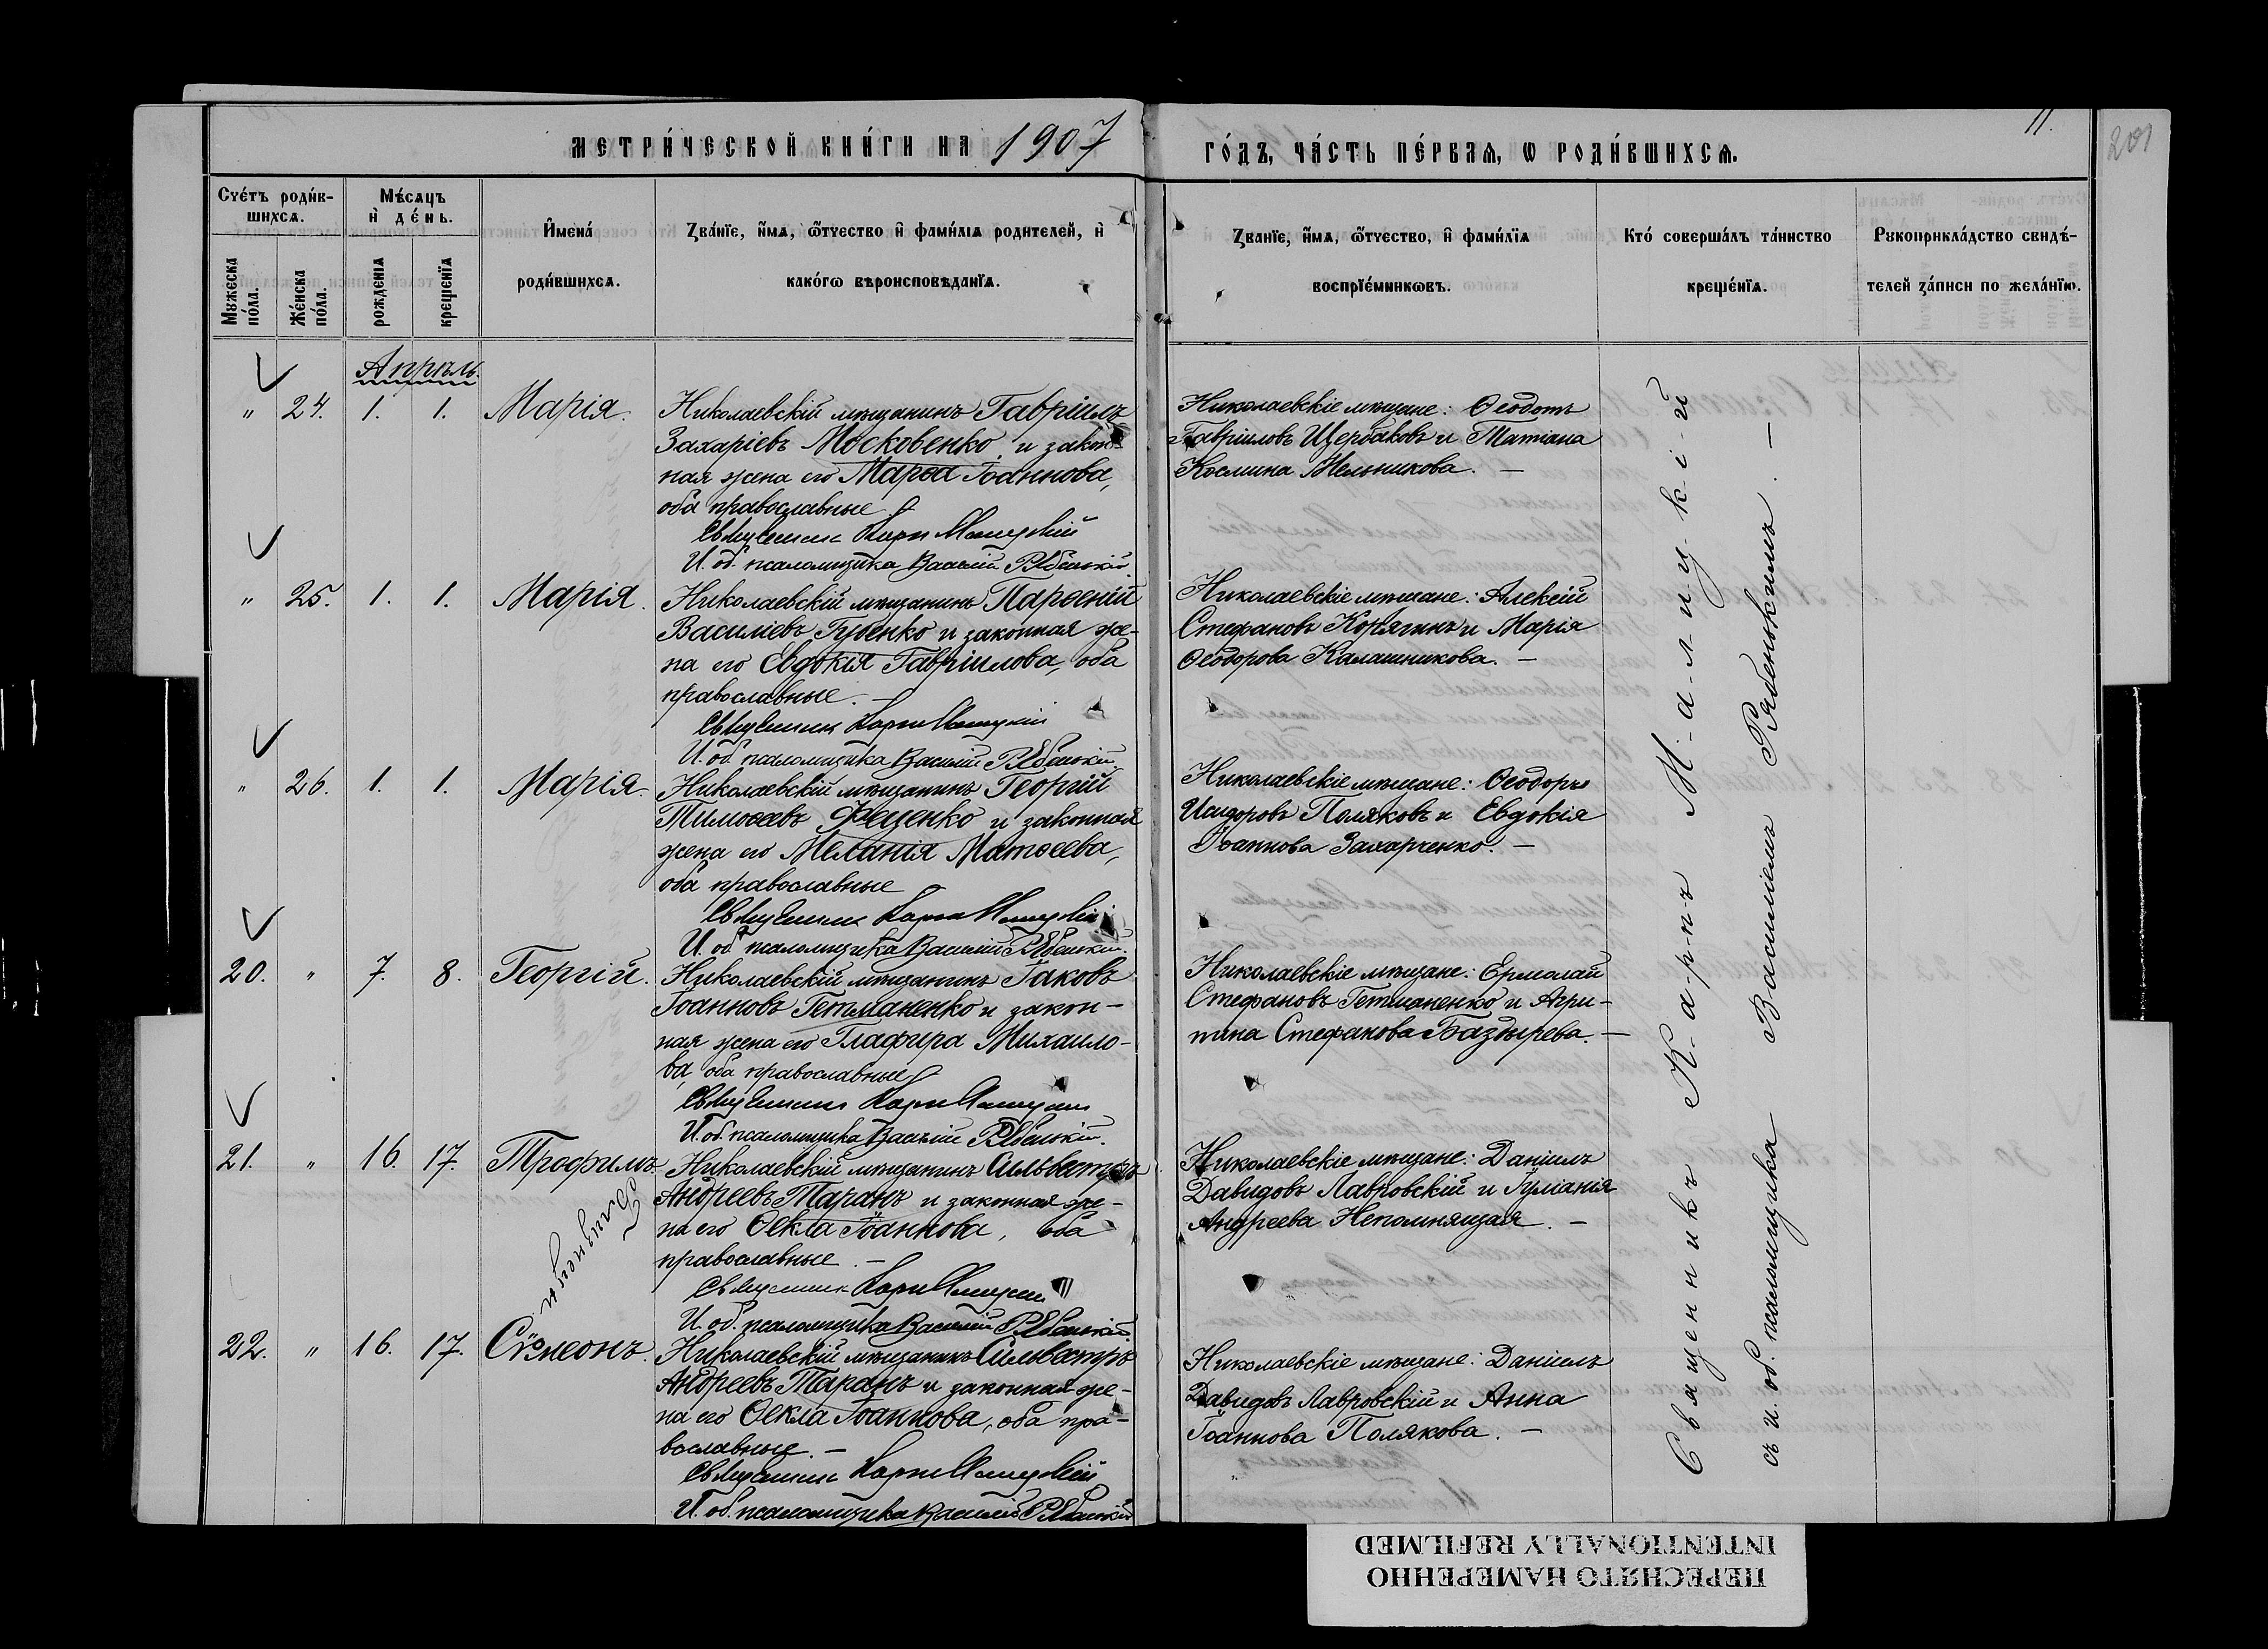 МЕТРИ́ЧЕСКОЙ КНИ́ГИ НА 1907
ГО́ДЪ, ЧА́СТЬ ПЕ́РВАѦ, Ѡ РОДИ́ВШИХСѦ.
11.
201
Счетъ роди́в-
шихсѧ.
Мужеска по́ла.
Же́нска по́ла.
Мѣсѧцъ
и де́нь.
рожденїѧ
крещенїѧ
Имена́
роди́вшихсѧ.
Зва́нїе, и́мѧ, ѻ҆́тчество и҆ фами́лїѧ родителей, и҆
како́гѡ вѣроисповѣданїѧ.
Зва́нїе, и́мѧ, ѻ҆́тчество, и҆ фами́лїѧ
воспрїе́мникѡвъ.
Кто́ соверша́лъ та́инство
креще́нїѧ.
Рукоприкла́дство свидѣ́-
телей за́писи по жела́нїю.
Апрѣль.
" 24. 1. 1. Марія.
Николаевскій мѣщанинъ Гавріилъ
Захаріевъ Московенко и закон-
ная жена его Марѳа Іоаннова,
оба православные
Священникъ Карпъ Малицкій
И. об. псаломщика Василій Рябенькій
Николаевскіе мѣщане: Ѳеодотъ
Гавріиловъ Щербаковъ и Татіана
Косьмина Мельникова. —
" 25. 1. 1. Марія.
Николаевскій мѣщанинъ Парѳеній
Василіевъ Гуценко и законная же-
на его Евдокія Гавріилова, оба
православные. —
Священникъ Карпъ Малицкій
И. об. псаломщика Василій Рябенькій.
Николаевскіе мѣщане: Алексій
Стефановъ Корягинъ и Марія
Ѳеодорова Калашникова. —
" 26. 1. 1. Марія.
Николаевскій мѣщанинъ Георгій
Тимоѳеевъ Феценко и законная
жена его Меланія Матѳеева,
оба православные
Священникъ Карпъ Малицкій
И. об. псаломщика Василій Рябенькій.
Николаевскіе мѣщане: Ѳеодоръ
Исидоровъ Поляковъ и Евдокія
Іоаннова Захарченко. —
20. " 7. 8. Георгій.
Николаевскій мѣщанинъ Іаковъ
Іоанновъ Гетманенко и закон-
ная жена его Глафира Михаило-
ва, оба православные
Священникъ Карпъ Малицкій
И. об. псаломщика Василій Рябенькій.
Николаевскіе мѣщане: Ермолай
Стефановъ Гетманенко и Агри-
пина Стефанова Баздырева. —
21. " 16. 17. Трофимъ
близнецы
Николаевскій мѣщанинъ Сильвестръ
Андреевъ Таранъ и законная же-
на его Ѳекла Іоаннова, оба
православные. —
Священникъ Карпъ Малицкій
И. об. псаломщика Василій Рябенькій.
Николаевскіе мѣщане: Даніилъ
Давидовъ Лавровскій и Іуліанія
Андреева Непомнящая. —
22. " 16. 17. Сѷмеонъ.
Николаевскій мѣщанинъ Сильвестръ
Андреевъ Таранъ и законная же-
на его Ѳекла Іоаннова, оба пра-
вославные. —
Священникъ Карпъ Малицкій
И. об. псаломщика Василій Рябенькій
Николаевскіе мѣщане: Даніилъ
Давидовъ Лавровскій и Анна
Іоаннова Полякова. —
Священникъ Карпъ Малицкій
съ и. об. псаломщика Василіемъ Рябенькимъ. —
ПЕРЕСНЯТО НАМЕРЕННО
INTENTIONALLY REFILMED